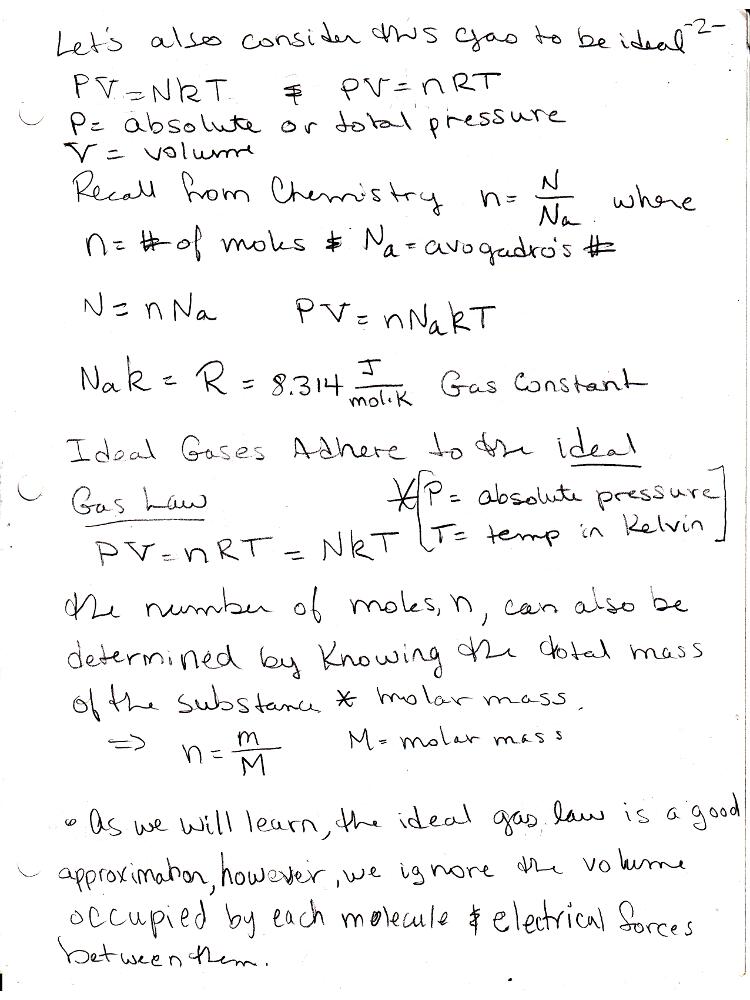 Let's also consider this gas to be ideal -2-
PV = NkT & PV = nRT
P = absolute or total pressure
V = volume
Recall from Chemistry n = N/Na where
n = # of moles & Na = avogadro's #
N = nNa PV = nNakT
Nak = R = 8.314 J/mol·K Gas Constant
Ideal Gases Adhere to the ideal
Gas Law *[P = absolute pressure
PV = nRT = NkT T = temp in Kelvin]
the number of moles, n, can also be
determined by knowing the total mass
of the substance & molar mass.
⇒ n = m/M M = molar mass
• As we will learn, the ideal gas law is a good
approximation, however, we ignore the volume
occupied by each molecule & electrical forces
between them.